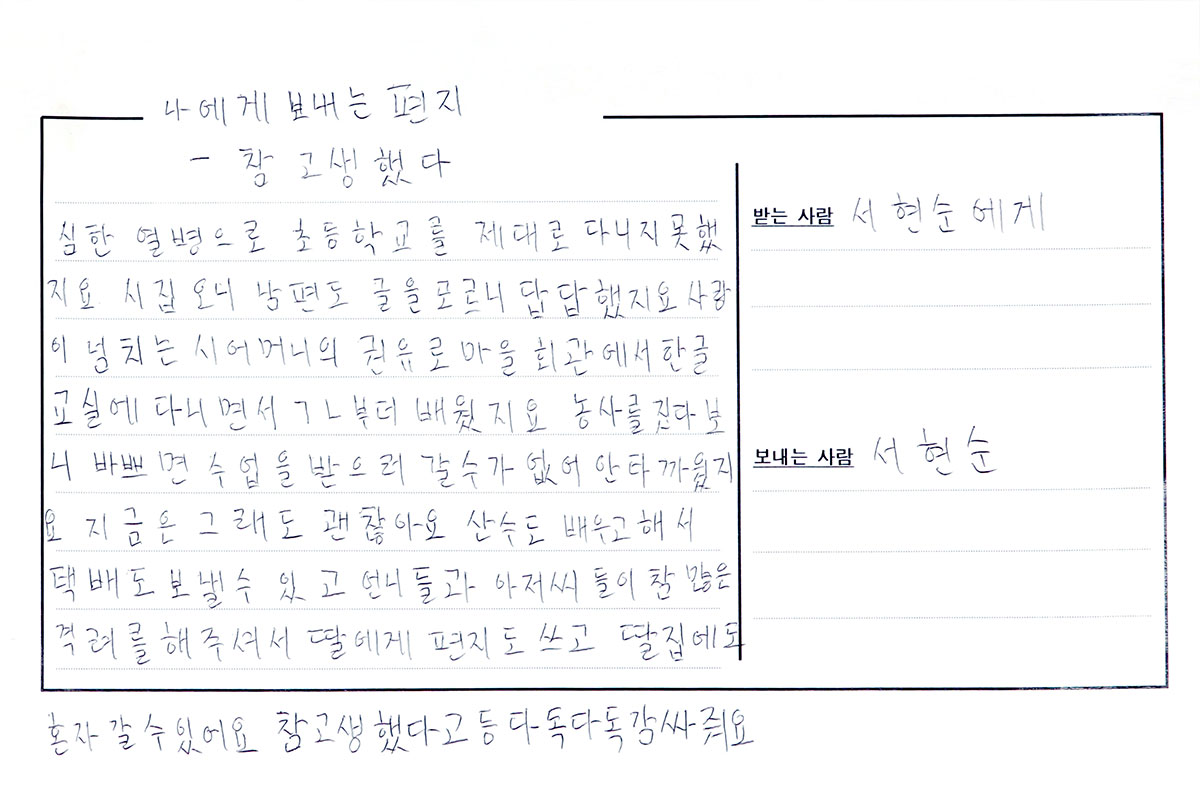 나에게 보내는 편지
- 참 고생했다
심한 열병으로 초등학교를 제대로 다니지못했
지요 시집 오니 남편도 글을모르니 답답했지요 사랑
이 넘치는 시어머니의 권유로 마을 회관에서 한글
교실에 다니면서 ㄱㄴ부터 배웠지요 농사를 짓다 보
니 바쁘면 수업을 받으러 갈수가 없어 안타까웠지
요 지금은 그래도 괜찮아요 산수도 배우고해서
택배도 보낼수 있고 언니들과 아저씨들이 참 많은
격려를해주셔서 딸에게 편지도 쓰고 딸집에도
혼자갈수있어요 참고생했다고등다독다독감싸줘요
받는 사람 서현순에게
보내는 사람 서현순